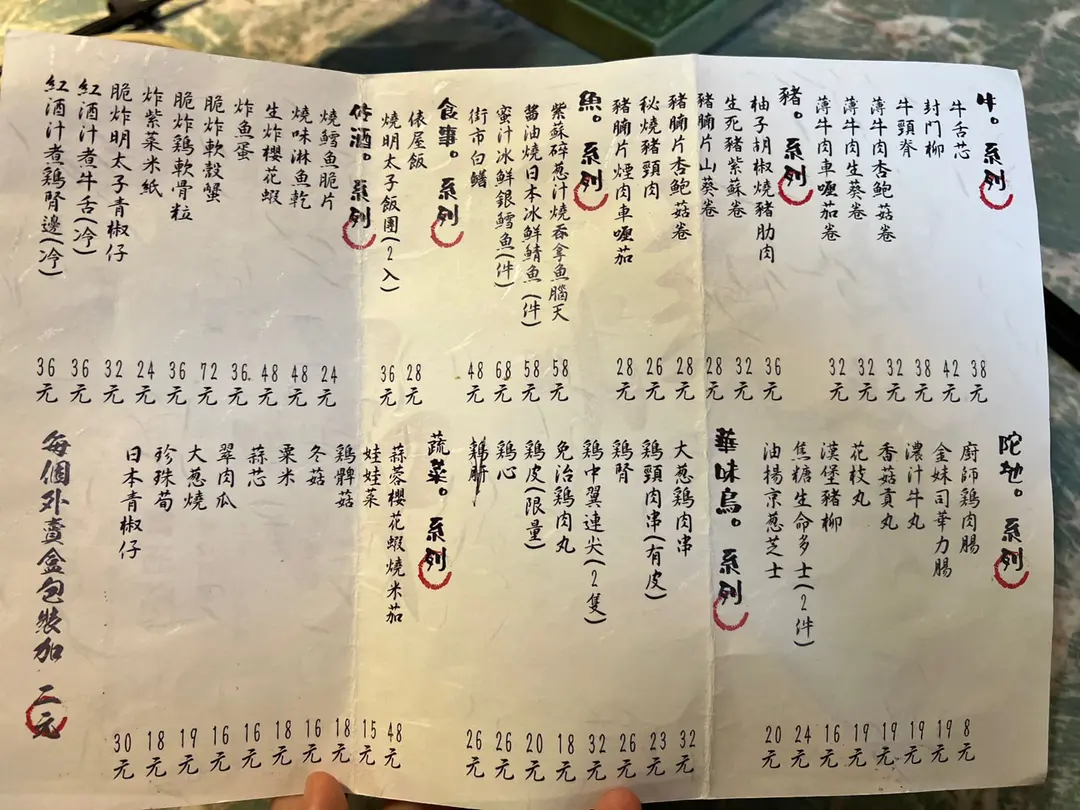 牛。系列
牛舌芯 38元
封門柳 42元
牛頸脊 38元
薄牛肉杏鮑菇卷 32元
薄牛肉生葵卷 32元
薄牛肉車喱茄卷 32元
豬。系列
柚子胡椒燒豬肋肉 36元
生死豬紫蘇卷 32元
豬腩片山葵卷 28元
豬腩片杏鮑菇卷 28元
秘燒豬頸肉 26元
豬腩片煙肉車喱茄 28元
魚。系列
紫蘇碎葱汁燒吞拿魚腦天 58元
醬油燒日本冰鮮鯖魚(件) 58元
蜜汁冰鮮銀鱈魚(件) 68元
街市白鱔 48元
食事。系列
俵屋飯 28元
燒明太子飯團(2入) 36元
佐酒。系列
燒鱈魚脆片 24元
燒味淋魚乾 48元
生炸櫻花蝦 48元
炸魚蛋 36元
脆炸軟殼蟹 72元
脆炸鷄軟骨粒 36元
炸紫菜米紙 24元
脆炸明太子青椒仔 32元
紅酒汁煮牛舌(冷) 36元
紅酒汁煮鷄腎邊(冷) 36元
陀地。系列
廚師鷄肉腸 8元
金妹司華力腸 19元
濃汁牛丸 19元
香菇貢丸 19元
花枝丸 19元
漢堡豬柳 16元
焦糖生命多士(2件) 24元
油揚京葱芝士 20元
華味鳥。系列
大葱鷄肉串 32元
鷄頸肉串(有皮) 23元
鷄腎 26元
鷄中翼連尖(2隻) 32元
免治鷄肉丸 18元
鷄皮(限量) 20元
鷄心 26元
鷄肝 26元
蔬菜。系列
蒜蓉櫻花蝦燒米茄 48元
娃娃菜 15元
鷄髀菇 18元
冬菇 16元
粟米 18元
蒜芯 16元
翠肉瓜 16元
大葱燒 19元
珍珠荀 18元
日本青椒仔 30元
每個外賣盒包裝加 二元